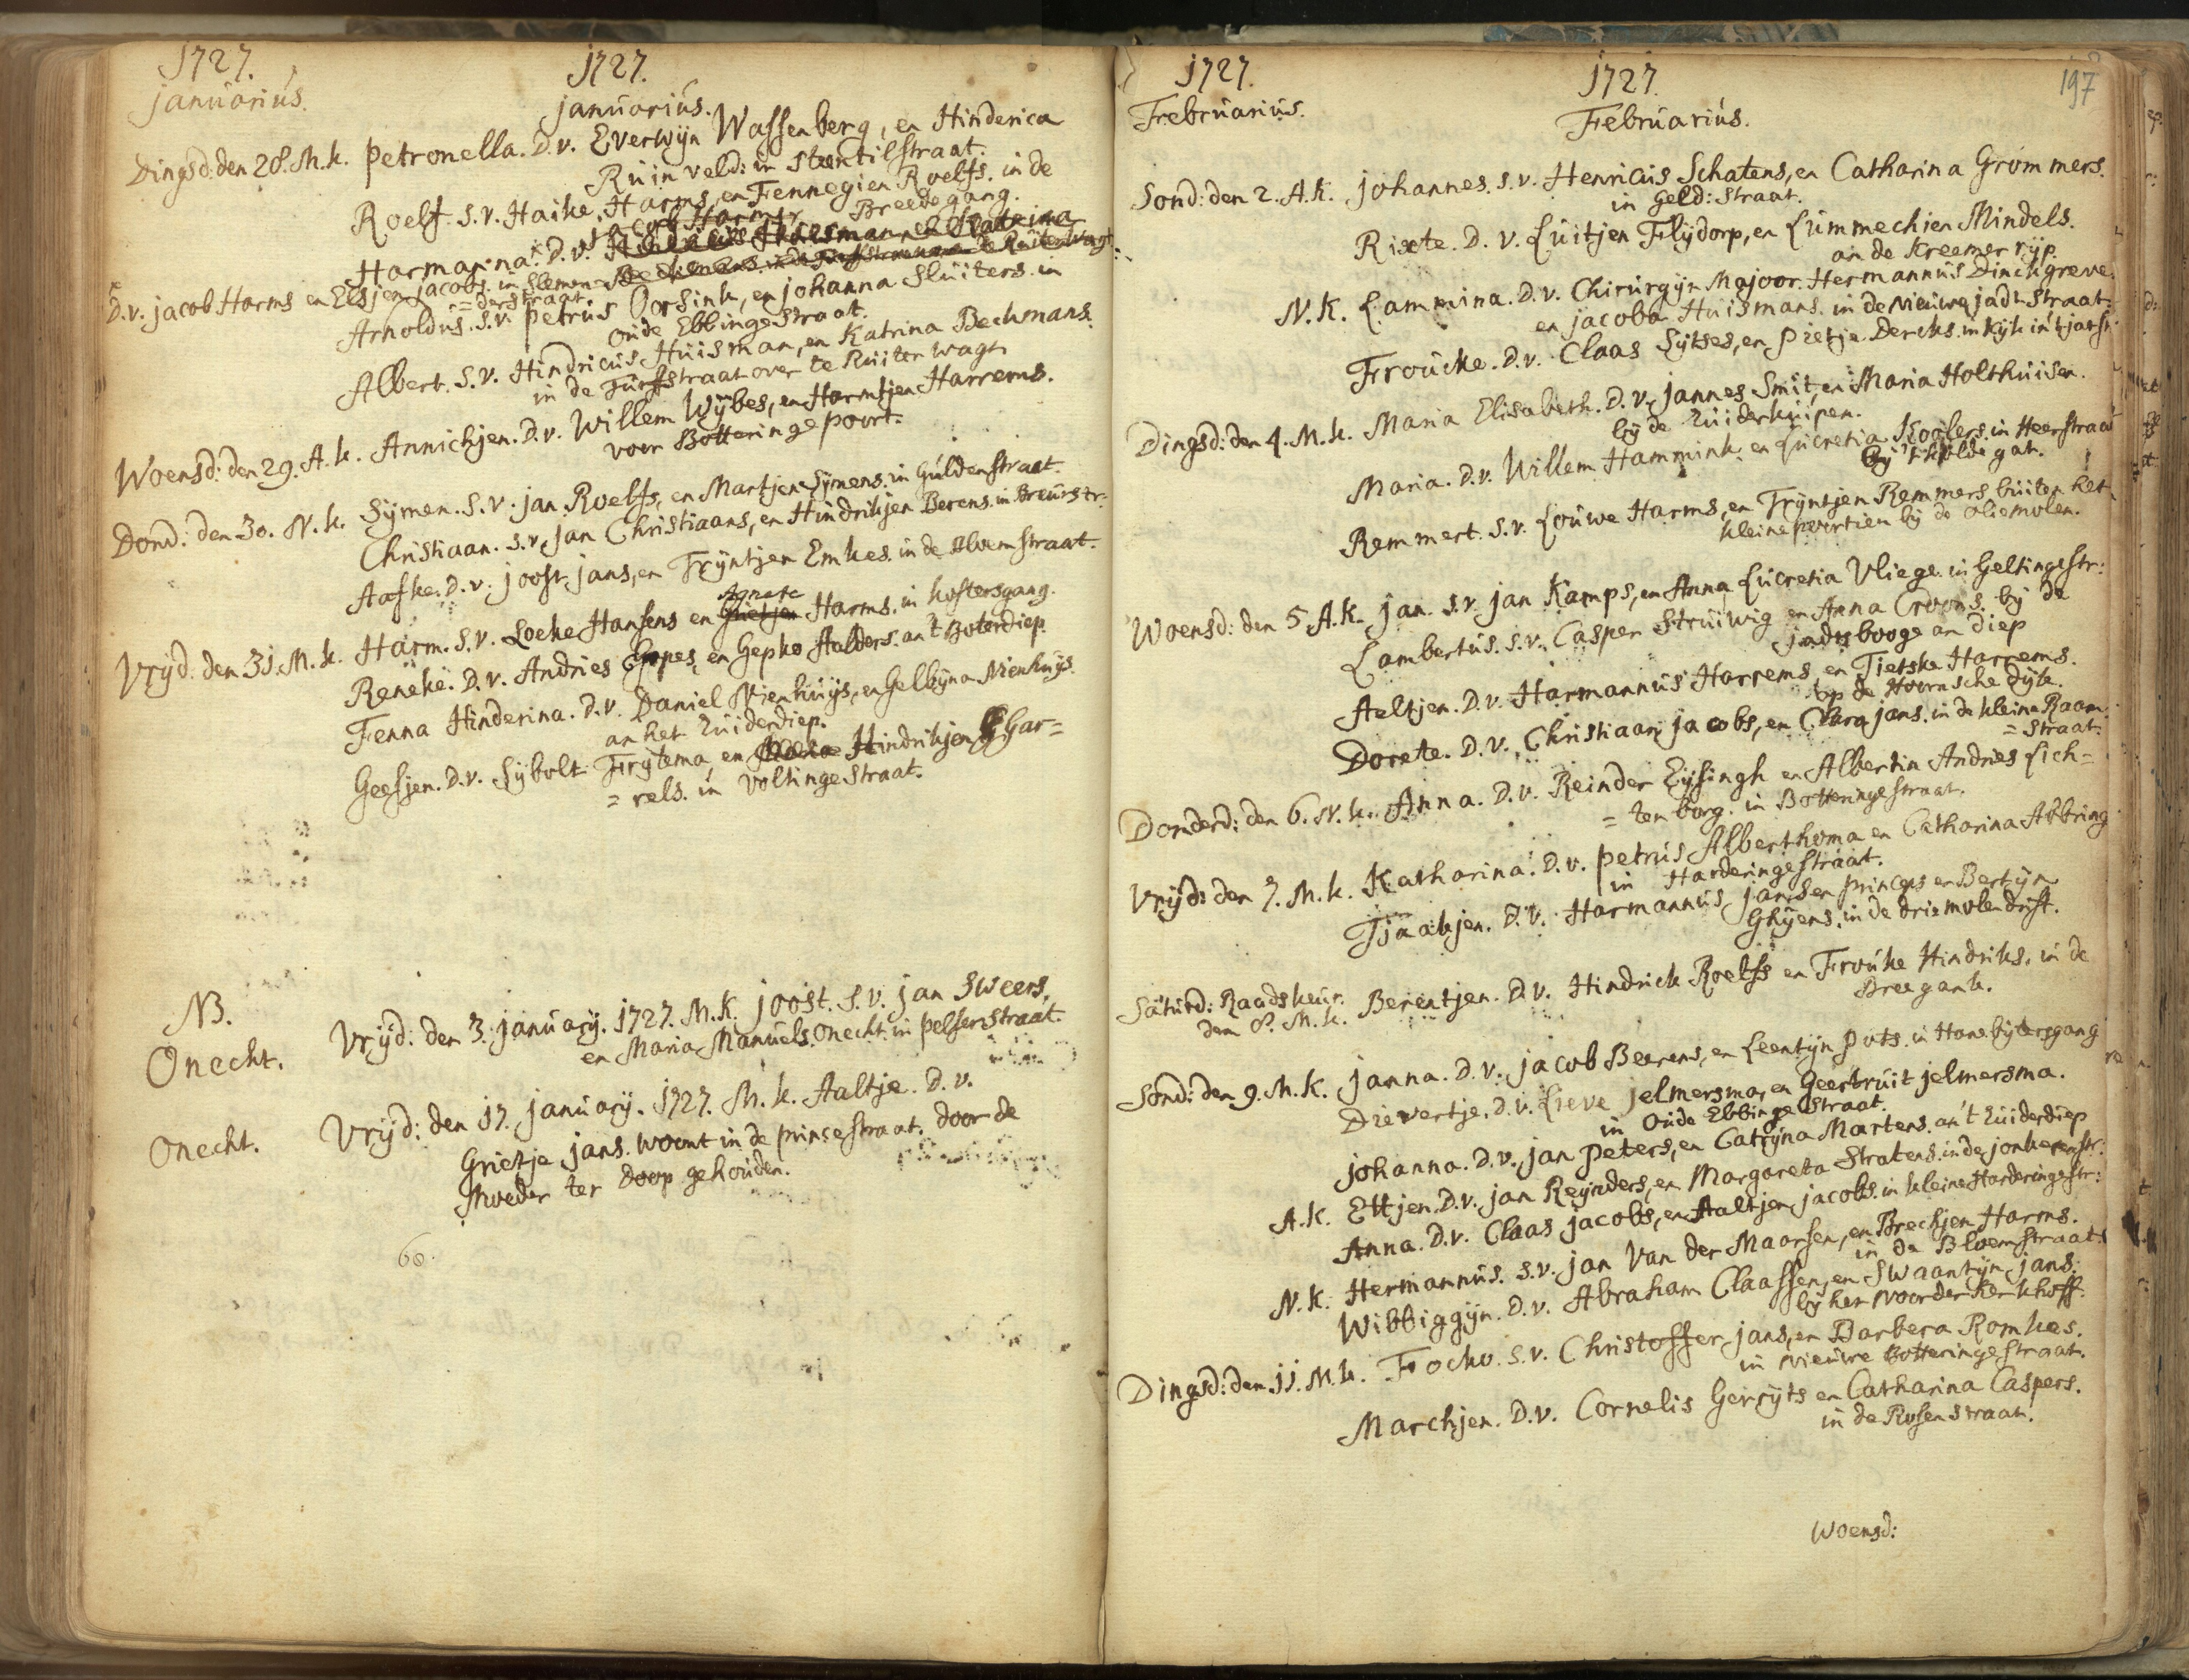 1727.
januarius.
1727.
januarius.
Dingsd: den 28. M.k. Petronella. D.v. Everwijn Wassenberg, en Hinderica
Ruinveld: in Steentilstraat.
Roelf. S.v. Haike Harms, en Fennegien Roelfs. in de
Breede gang.
Jacob Harms
Harmanna. D.v. Hindricus Huisman, en Katrina
Beckmans in de Turfstraat over de Ruiter wagt
D.v. jacob Harms en Elsjen jacobs. in Slemen=
=derstraat
Arnoldus. S.v. Petrus Oorsink, en johanna Sluiters. in
oude Ebbingestraat.
Albert. S.v. Hindricus Huisman, en Katrina Beckmans.
in de Turfstraat over te Ruiter wagt
Woensd: den 29. A.k. Annichjen. D.v. Willem Wijbes, en Harmtjen Harrems.
voor Botteringe poort.
Dond: den 30. N.k. Sijmen. S.v. jan Roelfs, en Martjen Sijmens. in Guldenstraat.
Christiaan. S.v. Jan Christiaans, en Hindrikjen Berens. in Breurstr:
Aafke. D.v. joost jans, en Trijntjen Emkes. in de Bloemstraat.
Vrijd. den 31. M.k. Harm. S.v. Loeke Hansens en Grietjen Harms. in kostersgang.
Agnete
Reneke. D.v. Andries Eppes, en Gepke Aalders. an 't Boterdiep.
Fenna Hinderina. D.v. Daniel Nienhuijs, en Gellijna Nienhuijs.
an het Zuiderdiep.
Geesjen. D.v. Sijbolt Frijtema, en Hindrikjen Gar=
=rels. in Voltingestraat.
NB.
Onecht.
Vrijd: den 3. januarij. 1727. M.K. joost. S.v. jan Sweers,
en Maria Manuels. Onecht. in pelserstraat.
Onecht.
Vrijd: den 17. januarij. 1727. M.k. Aaltje. D.v.
Grietje jans. woont in de prinsestraat. door de
Moeder ter doop gehouden.
60.
1727.
Februarius.
1727.
Februarius.
197
Sond: den 2. A.k. johannes. S.v. Henricus Schatens, en Catharina Grommers.
in Geld: Straat.
Rixte. D.v. Luitjen Flijdorp, en Lummechien Mindels.
an de kreemer rijp.
N.k. Lammina. D.v. Chirurgijn Majoor. Hermannus Dinckgreve
en jacoba Huismans. in de Nieuwe jadt straat.
Froucke. D.v. Claas Sijtses, en Pietje Dercks. in kijk in 't jatstr:
Dingsd: den 4. M.k. Maria Elisabeth. D.v. jannes Smit, en Maria Holthuisen.
bij de Zuiderkuipen.
Maria. D.v. Willem Hammink. en Lucretia Koolers. in Heerstraat
bij 't kolde gat.
Remmert. S.v. Louwe Harms, en Trijntjen Remmers. buiten het
kleine poortien bij de oliemolen.
Woensd: den 5. A.k. jan. S.v. jan Kamps, en Anna Lucretia Vliege. in Geltingestr:
Lambertus. S.v. Casper Struiwig en Anna Croons. bij de
jadsbooge an diep
Aeltjen. D.v. Harmannus Harrems, en Tietske Harrems.
op de Hoornsche dijk.
Dorete. D.v. Christiaan jacobs, en Clara jans. in de kleine Raam=
=straat.
Donderd: den 6. N.k. Anna. D.v. Reinder Eijsingh en Albertin Andries Lich=
=tenborg. in Botteringestraat.
Vrijd: den 7. M.k. Katharina. D.v. Petrus Alberthoma en Catharina Abbring
in Harderingestraat.
Tjaakjen. D.v. Harmannus jansen princeps en Bertijn
Ghijens. in de drie molen drift.
Saturd: Raadskeur.
den 8. M.k. Berentjen. D.v. Hindrick Roelfs en Frouke Hindriks. in de
Breegank.
Sond: den 9. M.k. janna. D.v. jacob Beerens, en Leentijn Puts. in Hanebijtersgang
Diewertje. D.v. Lieve jelmersma, en Geertruit jelmersma.
in Oude Ebbinge Straat.
johanna. D.v. jan Peters, en Catrijna Martens. an 't Zuiderdiep
A.k. Ettjen. D.v. jan Reijnders, en Margareta Stratens. in de jonkerenstr:
Anna. D.v. Claas jacobs, en Aaltjen jacobs. in kleine Harderingestr:
N.k. Hermannus. S.v. jan van der Maarsen, en Brechjen Harms.
in de Bloemstraat.
Wibbiggijn. D.v. Abraham Claassen, en Swaantijn jans.
bij het Noorder kerkhoff.
Dingsd: den 11. M.k. Focko. S.v. Christoffer jans, en Barbera Romkes.
in Nieuwe Botteringestraat.
Marchjen. D.v. Cornelis Gerrijts en Catharina Caspers.
in de Rosenstraat.
Woensd: